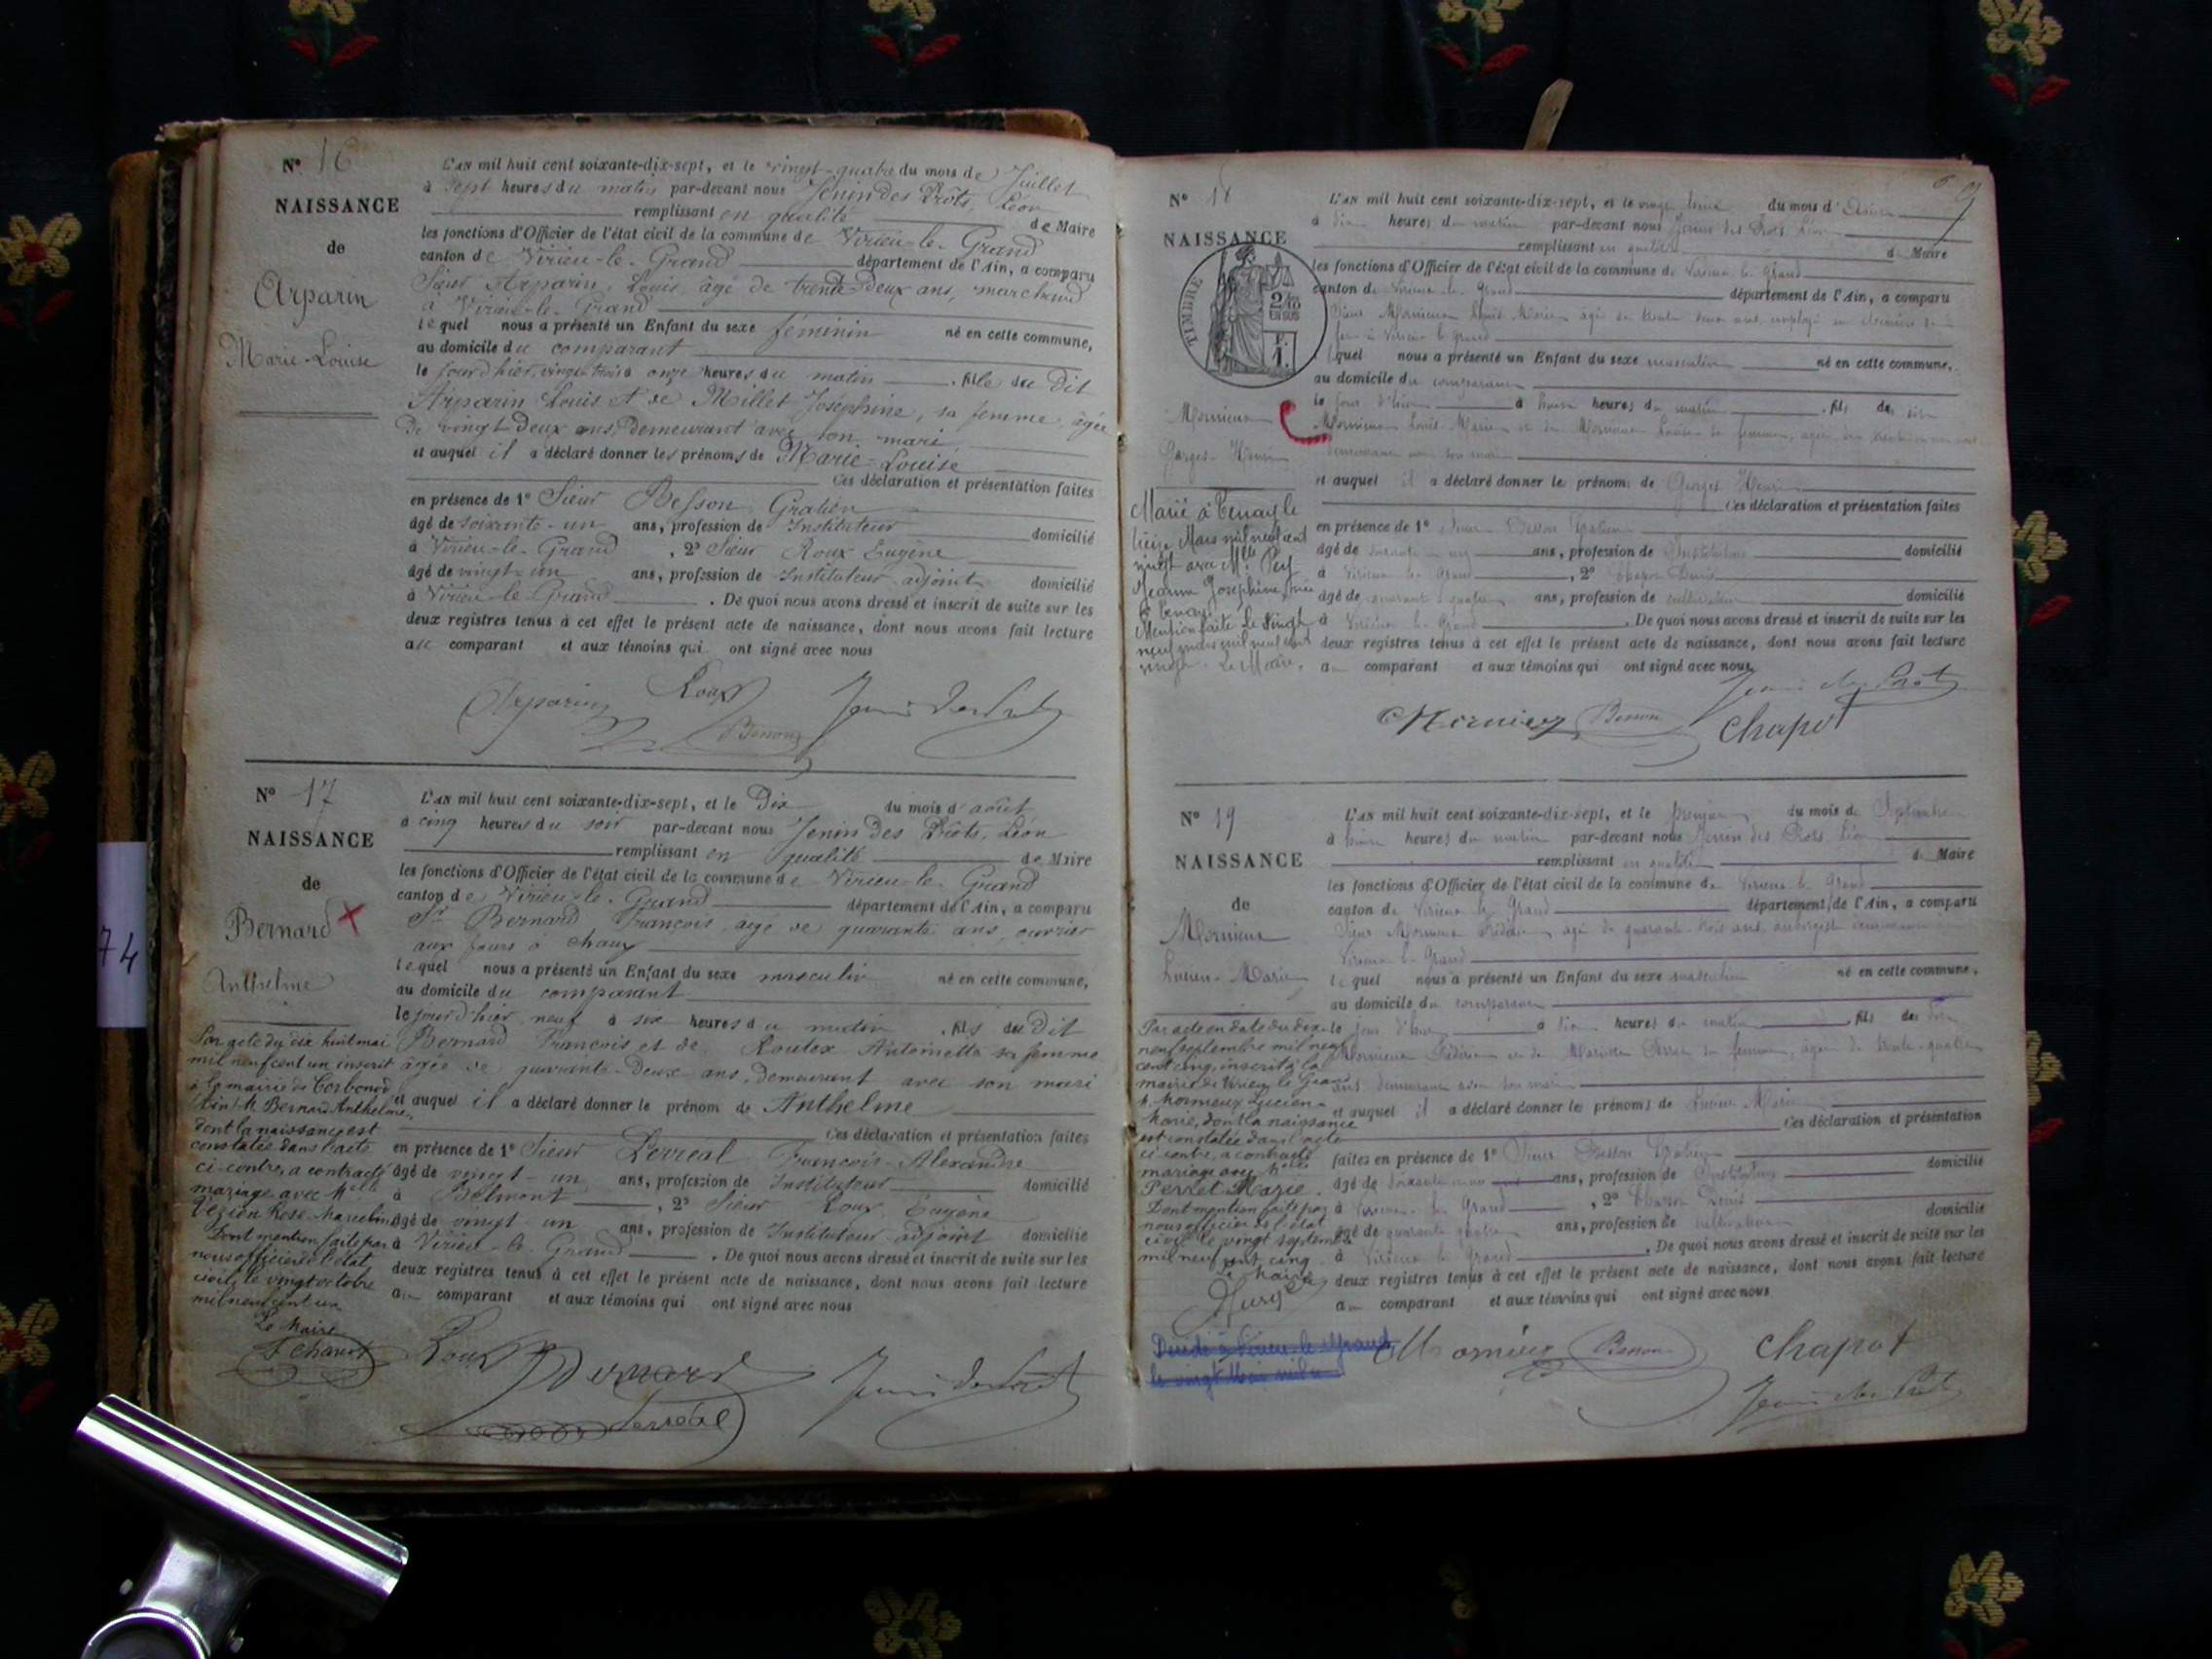 N° 16
NAISSANCE
de
Arparin
Marie-Louise
L'AN mil huit cent soixante-dix-sept, et le vingt-quatre du mois de Juillet
à sept heures du matin par-devant nous Jenin des Prôts, Léon
remplissant en qualité de Maire
les fonctions d'Officier de l'état civil de la commune de Virieu-le-Grand
canton de Virieu-le-Grand département de l'Ain, a comparu
Sieur Arparin, Louis, âgé de trente deux ans, marchand
à Virieu-le-Grand
lequel nous a présenté un Enfant du sexe féminin né en cette commune,
au domicile du comparant
le jour d'hier, vingt trois à onze heures du matin, fille du dit
Arparin Louis et de Millet Joséphine, sa femme, âgée
de vingt deux ans, demeurant avec son mari
et auquel il a déclaré donner les prénoms de Marie-Louise
Ces déclaration et présentation faites
en présence de 1° Sieur Besson Gratien
âgé de soixante-un ans, profession de Instituteur domicilié
à Virieu-le-Grand, 2° Sieur Roux Eugène
âgé de vingt-un ans, profession de Instituteur adjoint domicilié
à Virieu-le-Grand. De quoi nous avons dressé et inscrit de suite sur les
deux registres tenus à cet effet le présent acte de naissance, dont nous avons fait lecture
au comparant et aux témoins qui ont signé avec nous
Arparin Roux Jenin des Prôts
Besson
N° 17
NAISSANCE
de
Bernard
Anthelme
L'AN mil huit cent soixante-dix-sept, et le Dix du mois d'août
à cinq heures du soir par-devant nous Jenin des Prôts, Léon
remplissant en qualité de Maire
les fonctions d'Officier de l'état civil de la commune de Virieu-le-Grand
canton de Virieu-le-Grand département de l'Ain, a comparu
Sr Bernard François, âgé de quarante ans, ouvrier
aux fours à chaux
lequel nous a présenté un Enfant du sexe masculin né en cette commune,
au domicile du comparant
le jour d'hier neuf à six heures du matin, fils du Dit
Bernard François et de Roulex Antoinette sa femme
âgée de quarante-Deux ans, demeurant avec son mari
et auquel il a déclaré donner le prénom de Anthelme
Ces déclaration et présentation faites
en présence de 1° Sieur Perréal François-Alexandre
âgé de vingt-un ans, profession de Instituteur domicilié
à Belmont, 2° Sieur Roux, Eugène
âgé de vingt-un ans, profession de Instituteur-adjoint domicilié
à Virieu-le-Grand. De quoi nous avons dressé et inscrit de suite sur les
deux registres tenus à cet effet le présent acte de naissance, dont nous avons fait lecture
au comparant et aux témoins qui ont signé avec nous
Par acte du dix huit mai
mil neuf cent un inscrit
à la mairie de Corbonod
(Ain) M. Bernard Anthelme,
dont la naissance est
constatée dans l'acte
ci-contre, a contracté
mariage avec Melle
Vézien Rose Marceline
Dont mention faite par
nous officier de l'état
civil, le vingt octobre
mil neuf cent un
Le Maire
Roux Bernard Jenin des Prôts
Perréal
74
N° 18
NAISSANCE
TIMBRE
2/10 EN SUS
F. 1.
Mornieux
Georges-Henri
Marié à Tenay le
treize Mars mil neuf cent
vingt avec Mlle Pey
Jeanne Joséphine
à Tenay.
Mention faite le vingt
neuf mars mil neuf cent
vingt. Le Maire.
L'AN mil huit cent soixante-dix-sept, et le vingt du mois d'
à dix heures du matin par-devant nous Jenin des Prôts Léon
remplissant en qualité de Maire
les fonctions d'Officier de l'état civil de la commune de Virieu-le-Grand
canton de Virieu-le-Grand département de l'Ain, a comparu
Sieur Mornieux Louis Marie âgé de trente deux ans, employé au chemin de
fer à Virieu le Grand
lequel nous a présenté un Enfant du sexe masculin né en cette commune,
au domicile du comparant
le jour d'hier à heures du matin, fils du dit
Mornieux Louis-Marie et de Mornieux sa femme, âgée de
demeurant avec son mari
et auquel il a déclaré donner les prénoms de Georges Henri
Ces déclaration et présentation faites
en présence de 1° Sieur Besson Gratien
âgé de soixante un ans, profession de Instituteur domicilié
à Virieu-le-Grand, 2° Chapot Denis
âgé de quarante quatre ans, profession de cultivateur domicilié
à Virieu le Grand. De quoi nous avons dressé et inscrit de suite sur les
deux registres tenus à cet effet le présent acte de naissance, dont nous avons fait lecture
au comparant et aux témoins qui ont signé avec nous
Jenin des Prôts
Mornieux Besson Chapot
N° 19
NAISSANCE
de
Mornieux
Lucien-Marie
L'AN mil huit cent soixante-dix-sept, et le premier du mois de Septembre
à heures du matin par-devant nous Jenin des Prôts Léon
remplissant en qualité de Maire
les fonctions d'Officier de l'état civil de la commune de Virieu le Grand
canton de Virieu le Grand département de l'Ain, a comparu
Sieur Mornieux Frédéric, âgé de quarante-trois ans, aubergiste demeurant à
Virieu-le-Grand
lequel nous a présenté un Enfant du sexe masculin né en cette commune,
au domicile du comparant
le jour d'hier à heures du matin, fils du dit
Mornieux Frédéric et de sa femme, âgée de trente-quatre
ans, demeurant avec son mari
et auquel il a déclaré donner les prénoms de Lucien Marie
Ces déclaration et présentation
faites en présence de 1° Sieur Besson Gratien
âgé de soixante un ans, profession de Instituteur domicilié
à Virieu-le-Grand, 2° Chapot Denis
âgé de quarante quatre ans, profession de cultivateur domicilié
à Virieu le Grand. De quoi nous avons dressé et inscrit de suite sur les
deux registres tenus à cet effet le présent acte de naissance, dont nous avons fait lecture
au comparant et aux témoins qui ont signé avec nous
Par acte en date du dix-
neuf septembre mil neuf
cent cinq, inscrit à la
mairie de Virieu le Grand
M. Mornieux Lucien-
Marie, dont la naissance
est constatée dans l'acte
ci contre, a contracté
mariage avec Melle
Perret Marie.
Dont mention faite par
nous officier de l'état
civil le vingt septembre
mil neuf cent cinq.
Le Maire
Décédé à Virieu-le-Grand
le vingt Mai mil
Mornieux Besson Chapot
Jenin des Prôts